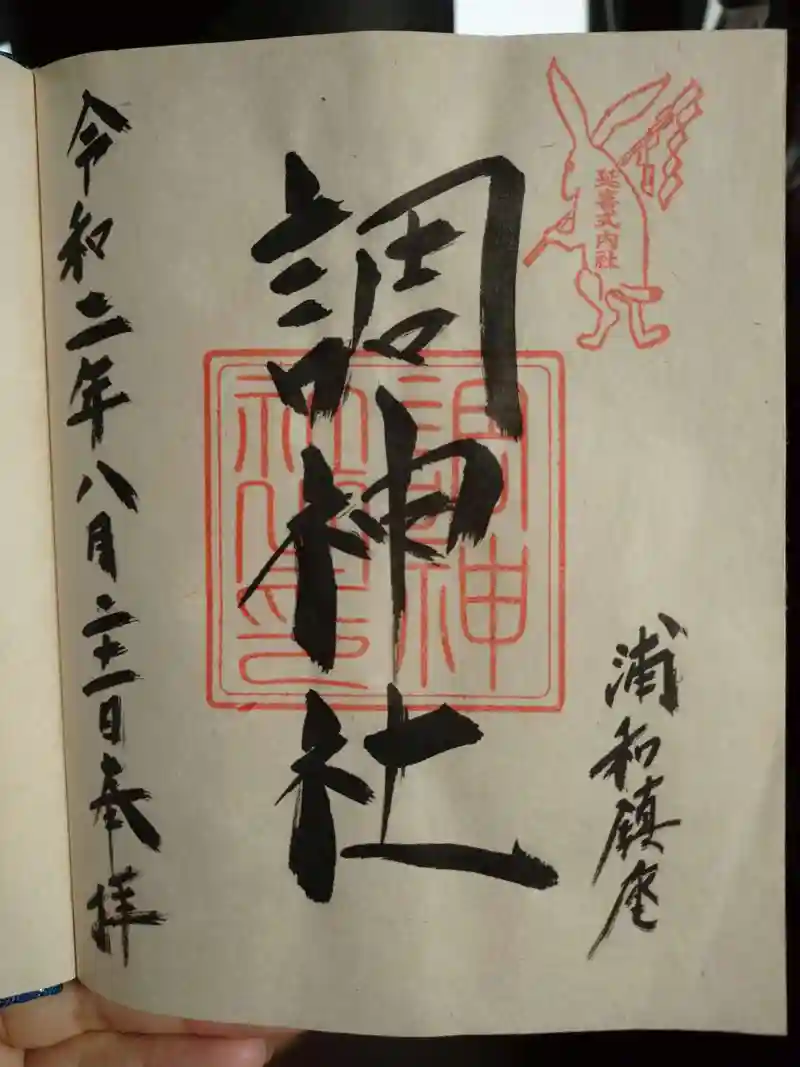 延喜式内社
浦和鎮座
調神社
調神
社之印
令和二年八月二十一日奉拝